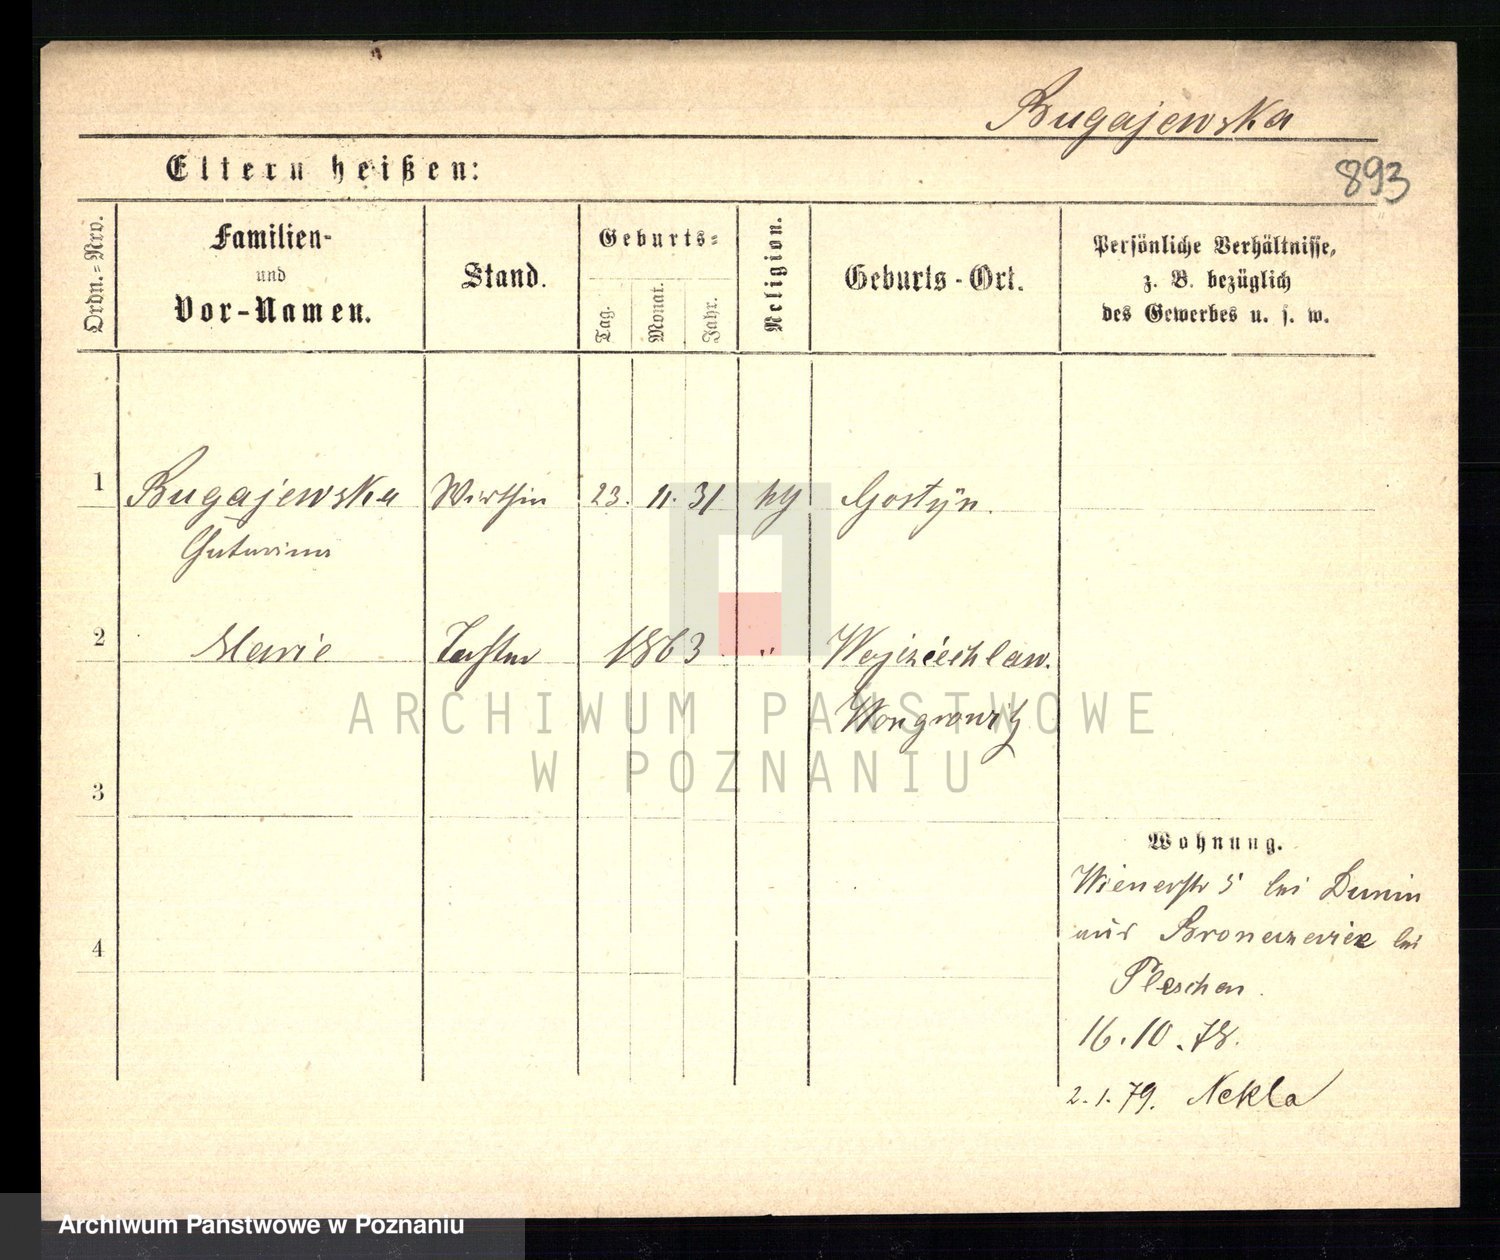 Bugajewska
893
Eltern heißen:
Ordn.-Nro.
Familien-
und
Vor-Namen.
Stand.
Geburts-
Tag.
Monat.
Jahr.
Religion.
Geburts-Ort.
Persönliche Verhältnisse,
z. B. bezüglich
des Gewerbes u. s. w.
1 Bugajewska Wirthin 23. 11. 31 Gostÿn.
2 Marie 1863 "
3
4
Wohnung.
Wienerstr 5 bei Dunin
aus bei
Pleschen.
16.10.78.
2.1.79. Nekla
ARCHIWUM PAŃSTWOWE
W POZNANIU
Archiwum Państwowe w Poznaniu